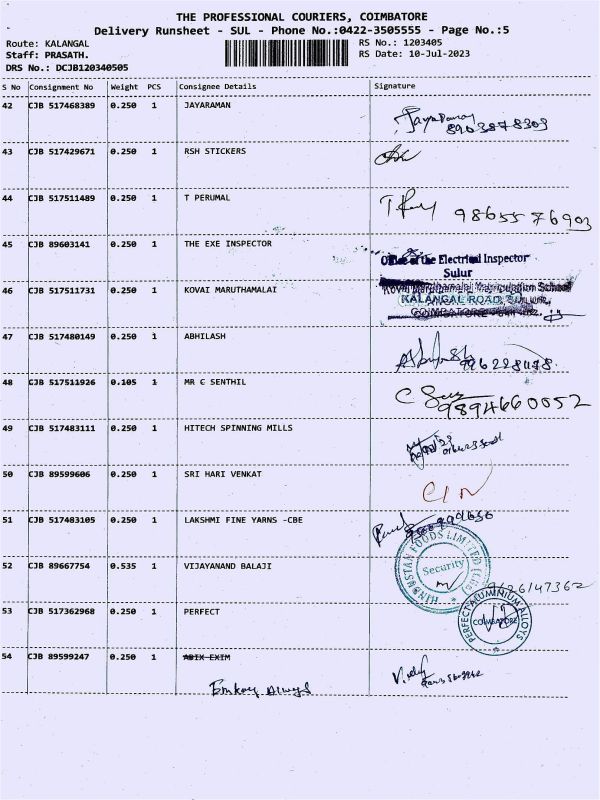 THE PROFESSIONAL COURIERS, COIMBATORE
Delivery Runsheet - SUL - Phone No.:0422-3505555 - Page No.:5
Route: KALANGAL
Staff: PRASATH.
DRS No.: DCJB120340505
RS No.: 1203405
RS Date: 10-Jul-2023
S No Consignment No Weight PCS Consignee Details Signature
42 CJB 517468389 0.250 1 JAYARAMAN
8903878303
43 CJB 517429671 0.250 1 RSH STICKERS
44 CJB 517511489 0.250 1 T PERUMAL
9865576903
45 CJB 89603141 0.250 1 THE EXE INSPECTOR
Office of the Electrical Inspector
Sulur
46 CJB 517511731 0.250 1 KOVAI MARUTHAMALAI
Kovai Maruthamalai Matriculation School
KALANGAL ROAD,
COIMBATORE
47 CJB 517480149 0.250 1 ABHILASH
48 CJB 517511926 0.105 1 MR C SENTHIL
9894660052
49 CJB 517483111 0.250 1 HITECH SPINNING MILLS
50 CJB 89599606 0.250 1 SRI HARI VENKAT
51 CJB 517483105 0.250 1 LAKSHMI FINE YARNS -CBE
HINDUSTAN FOODS LIMITED
Security
52 CJB 89667754 0.535 1 VIJAYANAND BALAJI
53 CJB 517362968 0.250 1 PERFECT
PERFECT ALUMINIUM ALLOYS
COIMBATORE
54 CJB 89599247 0.250 1 ABIX EXIM